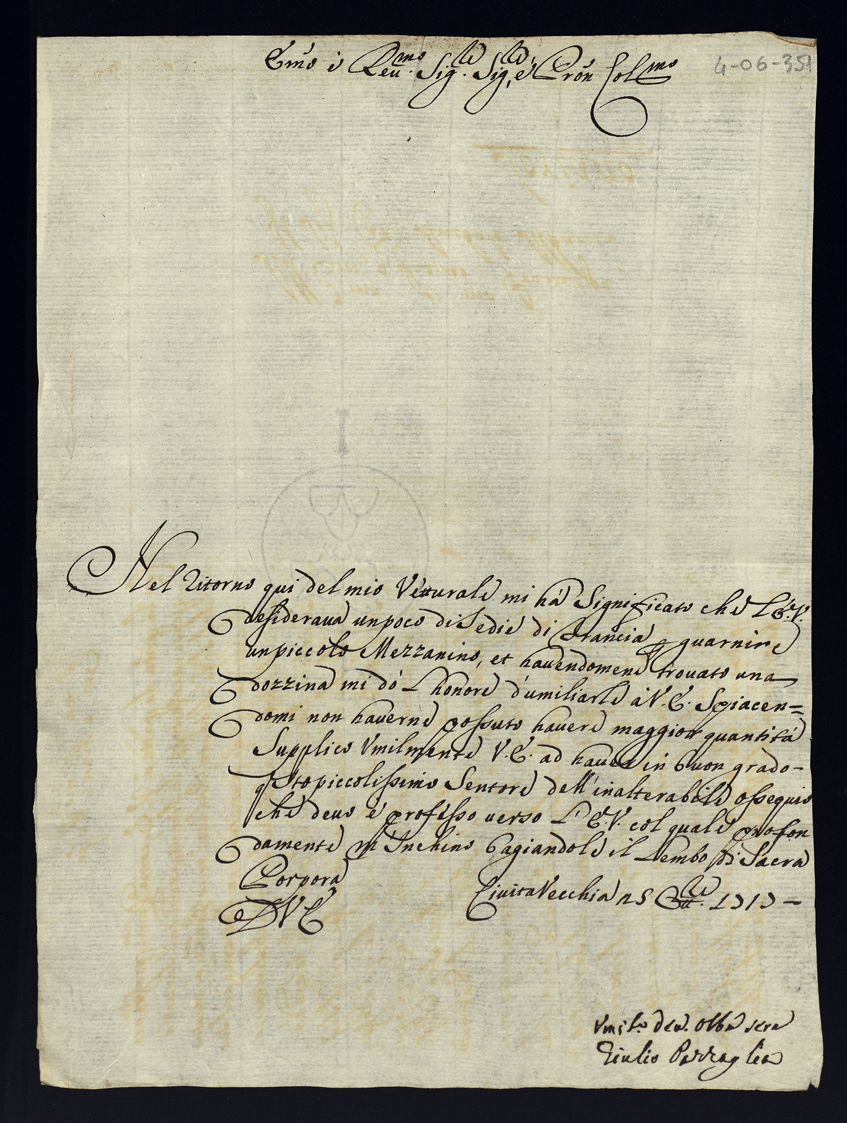 Emo e Reu.mo Sig.le Sig.le, e Pron Col.mo
4-06-351
Nel Ritorno qui del mio Vetturale mi há Significato che L'E.V.
desiderava un poco di Sedie di Francia p guarnire
un piccolo Mezzanino, et havendomene trovato una
dozzina mi dó L'honore d'umiliarle á V.E. Spiacen=
domi non haverne possuto havere maggior quantitá
Supplico Vmilmente V.E. ad haver in buon grado-
qsto piccolissimo Sentore dell'inalterabile ossequio
che devo e professo verso L'E.V. col quale profon
damente m'Inchino bagiandole il Lembo di Sacra
Porpora
D V E
CivitaVecchia
Vmil.o dev. Obb.o sera
Giulio Pazzaglia